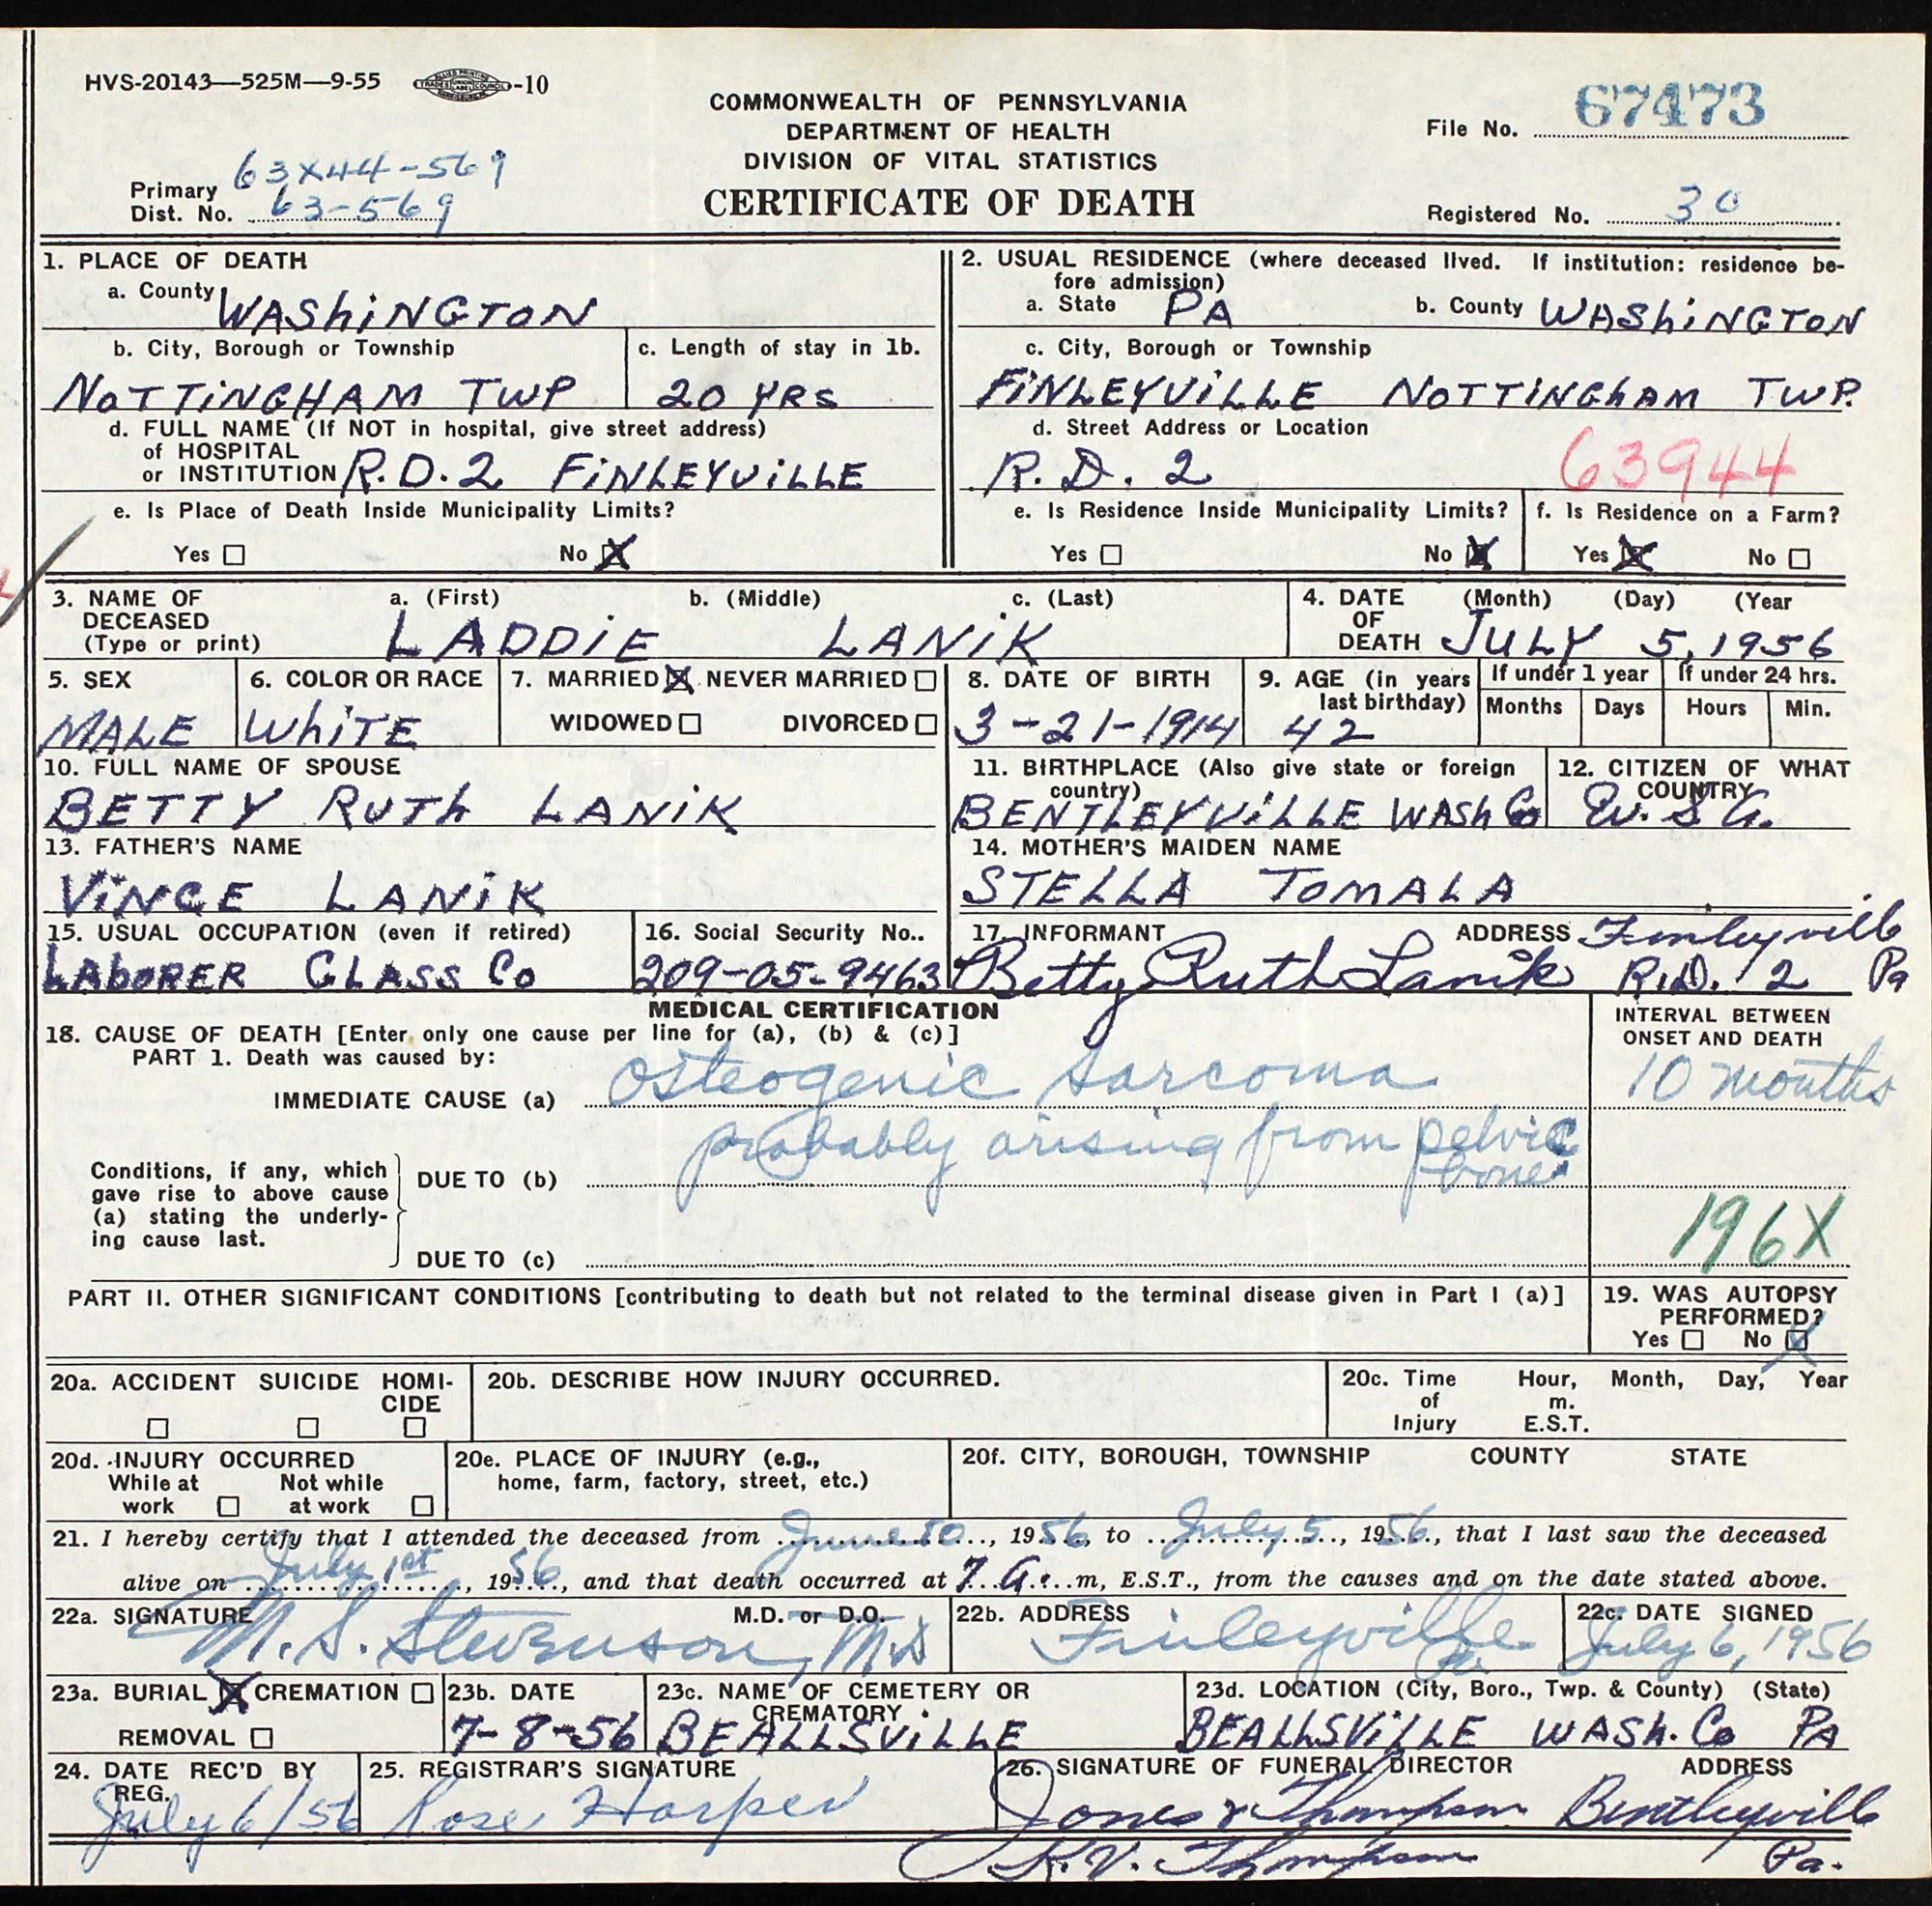 HVS-20143—525M—9-55 -10
COMMONWEALTH OF PENNSYLVANIA
DEPARTMENT OF HEALTH
DIVISION OF VITAL STATISTICS
CERTIFICATE OF DEATH
File No. 67473
63X44-569
Primary
Dist. No. 63-569
Registered No. 30
1. PLACE OF DEATH
a. County WASHINGTON
b. City, Borough or Township
NOTTINGHAM TWP
c. Length of stay in 1b.
20 YRS
d. FULL NAME (If NOT in hospital, give street address)
of HOSPITAL
or INSTITUTION R.D.2 FINLEYVILLE
e. Is Place of Death Inside Municipality Limits?
Yes ☐ No ☒
2. USUAL RESIDENCE (where deceased lived. If institution: residence be-
fore admission)
a. State PA b. County WASHINGTON
c. City, Borough or Township
FINLEYVILLE NOTTINGHAM TWP.
d. Street Address or Location
R.D. 2 63944
e. Is Residence Inside Municipality Limits?
Yes ☐ No ☒
f. Is Residence on a Farm?
Yes ☒ No ☐
3. NAME OF
DECEASED
(Type or print)
a. (First) b. (Middle) c. (Last)
LADDIE LANIK
4. DATE (Month) (Day) (Year
OF
DEATH JULY 5, 1956
5. SEX
MALE
6. COLOR OR RACE
WHITE
7. MARRIED ☒ NEVER MARRIED ☐
WIDOWED ☐ DIVORCED ☐
8. DATE OF BIRTH
3-21-1914
9. AGE (in years
last birthday)
42
If under 1 year If under 24 hrs.
Months Days Hours Min.
10. FULL NAME OF SPOUSE
BETTY RUTH LANIK
11. BIRTHPLACE (Also give state or foreign
country)
BENTLEYVILLE WASH Co
12. CITIZEN OF WHAT
COUNTRY
U.S.A.
13. FATHER'S NAME
VINCE LANIK
14. MOTHER'S MAIDEN NAME
STELLA TOMALA
15. USUAL OCCUPATION (even if retired)
LABORER GLASS Co
16. Social Security No..
209-05-9463
17. INFORMANT ADDRESS Finleyville
Betty Ruth Lanik R.D. 2 Pa
MEDICAL CERTIFICATION
18. CAUSE OF DEATH [Enter only one cause per line for (a), (b) & (c)]
PART 1. Death was caused by:
INTERVAL BETWEEN
ONSET AND DEATH
IMMEDIATE CAUSE (a) Osteogenic sarcoma 10 months
probably arising from pelvic
bone.
Conditions, if any, which
gave rise to above cause
(a) stating the underly-
ing cause last.
DUE TO (b)
DUE TO (c)
196X
PART II. OTHER SIGNIFICANT CONDITIONS [contributing to death but not related to the terminal disease given in Part I (a)]
19. WAS AUTOPSY
PERFORMED?
Yes ☐ No ☒
20a. ACCIDENT SUICIDE HOMI-
CIDE
☐ ☐ ☐
20b. DESCRIBE HOW INJURY OCCURRED.
20c. Time Hour, Month, Day, Year
of m.
Injury E.S.T.
20d. INJURY OCCURRED
While at Not while
work ☐ at work ☐
20e. PLACE OF INJURY (e.g.,
home, farm, factory, street, etc.)
20f. CITY, BOROUGH, TOWNSHIP COUNTY STATE
21. I hereby certify that I attended the deceased from June 10, 1956, to July 5, 1956, that I last saw the deceased
alive on July 1st, 1956, and that death occurred at 7 A.m, E.S.T., from the causes and on the date stated above.
22a. SIGNATURE M.D. or D.O.
M. S. Stevenson, M.D
22b. ADDRESS
Finleyville
Pa.
22c. DATE SIGNED
July 6, 1956
23a. BURIAL ☒ CREMATION ☐
REMOVAL ☐
23b. DATE
7-8-56
23c. NAME OF CEMETERY OR
CREMATORY
BEALLSVILLE
23d. LOCATION (City, Boro., Twp. & County) (State)
BEALLSVILLE WASH. Co PA
24. DATE REC'D BY
REG.
July 6/56
25. REGISTRAR'S SIGNATURE
Rose Harper
26. SIGNATURE OF FUNERAL DIRECTOR ADDRESS
Jones & Thompson Bentleyville
K. V. Thompson Pa.